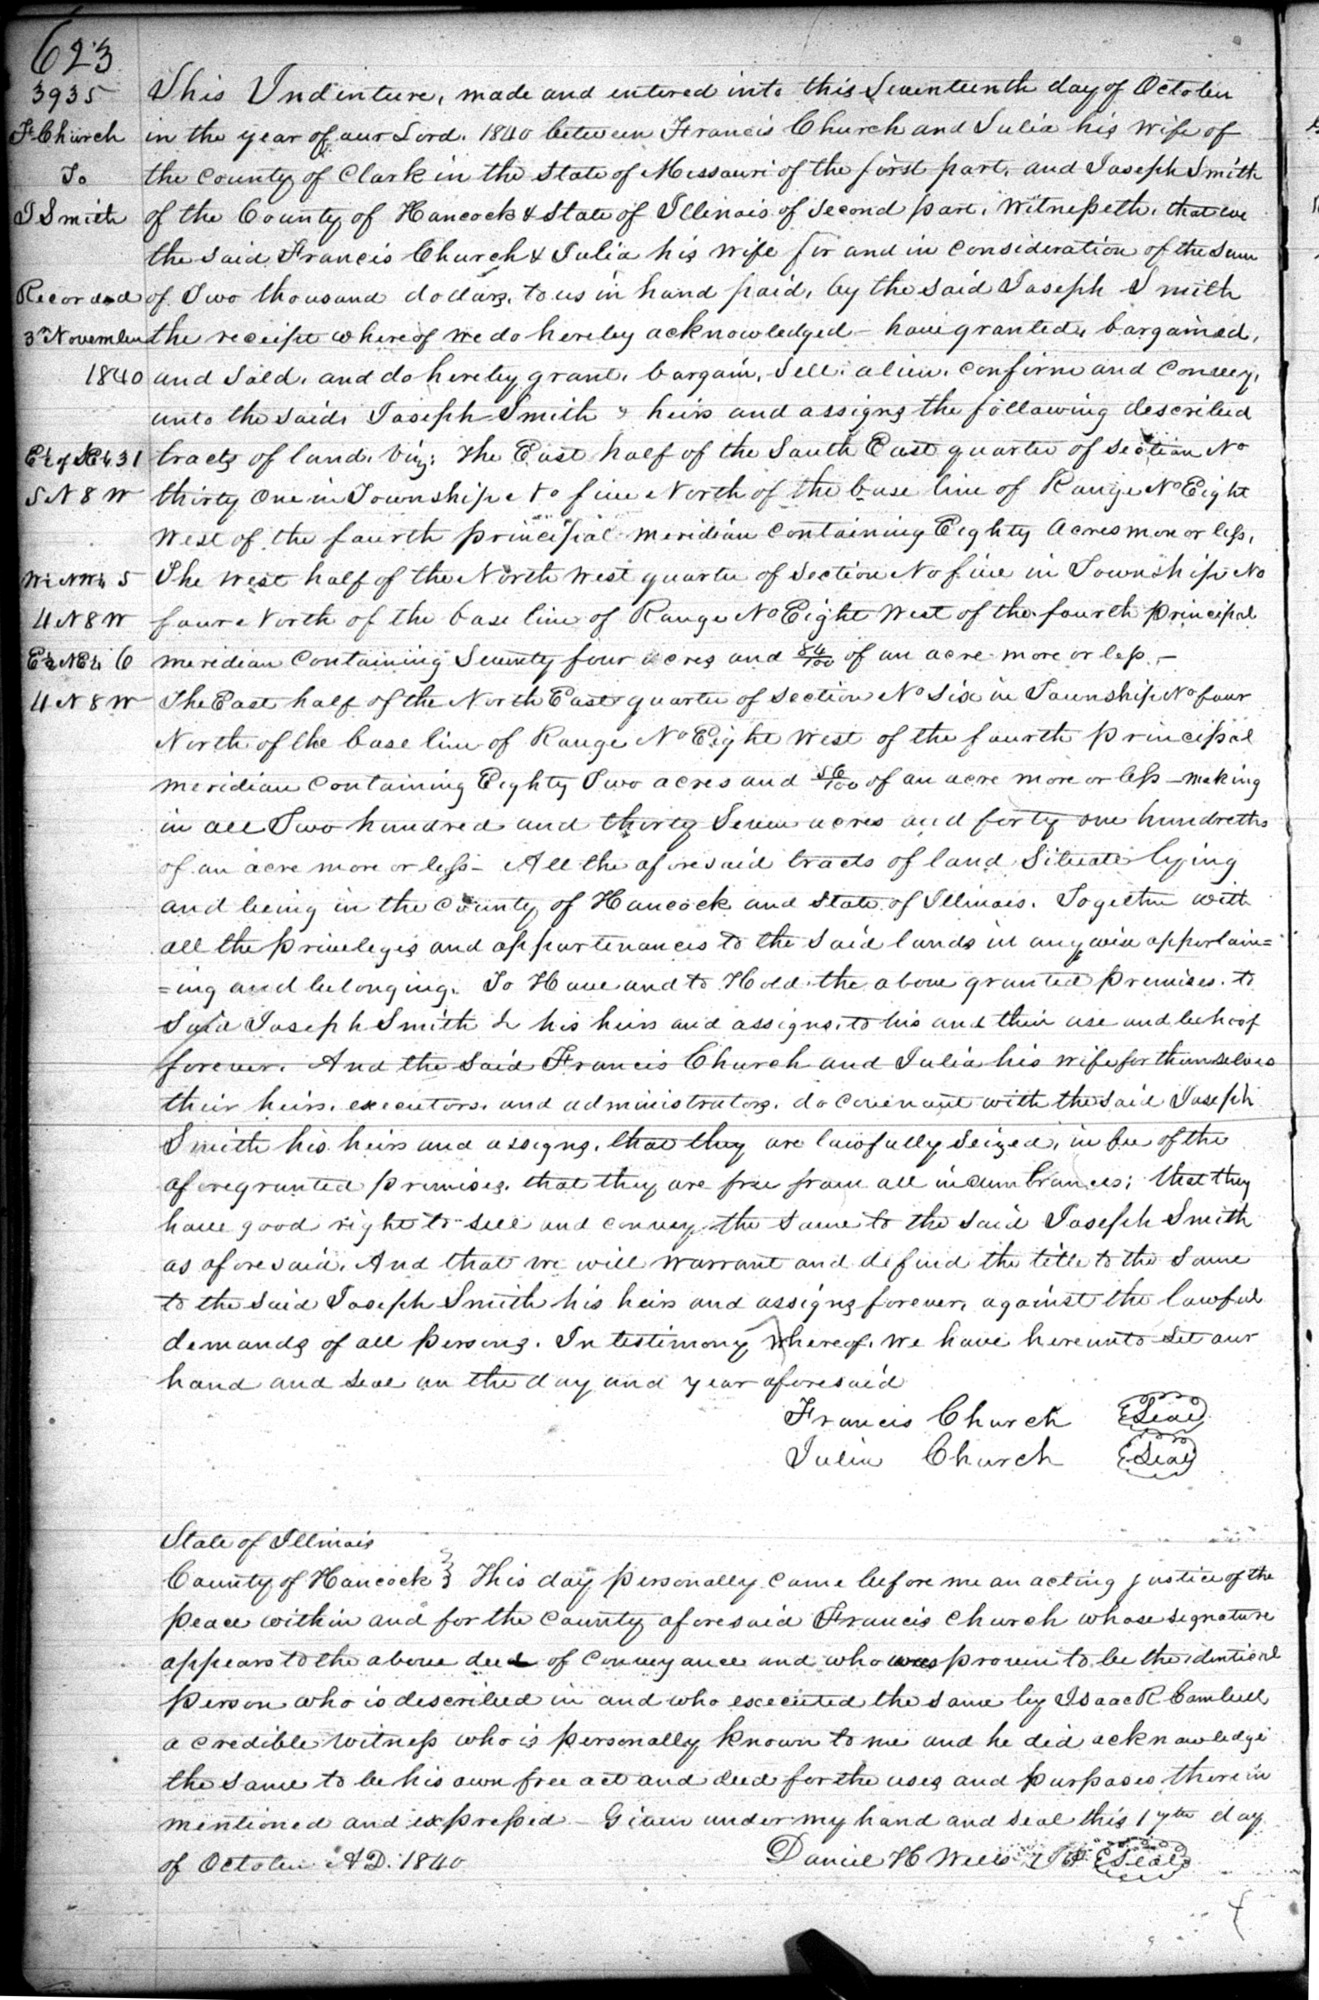 623
3935
F Church
To
J Smith
Recorded
3rd November
1840
E½ of SE¼ 31
5 N 8 W
W½ NW¼ 5
4 N 8 W
E½ NE¼ 6
4 N 8 W
This Indenture, made and entered into this Seventeenth day of October
in the year of our Lord. 1840 between Francis Church and Julia his wife of
the County of Clark in the State of Missouri of the first part, and Joseph Smith
of the County of Hancock & State of Illinois of second part, Witnesseth, that we
the said Francis Church & Julia his wife for and in consideration of the sum
of Two thousand dollars, to us in hand paid, by the said Joseph Smith
the receipt whereof we do hereby acknowledged – have granted, bargained,
and sold, and do hereby grant, bargain, sell, alien, confirm and convey,
unto the said, Joseph Smith & heirs and assigns the following described
tracts of land. viz: The East half of the South East quarter of section No
thirty one in Township No five North of the base line of Range No Eight
West of the fourth principal meridian containing Eighty Acres more or less,
The West half of the North West quarter of Section No five in Township No
four North of the base line of Range No Eight West of the fourth principal
meridian containing Seventy four acres and 84/100 of an acre more or less –
The East half of the North East quarter of Section No Six in Township No four
North of the base line of Range No Eight West of the fourth principal
meridian containing Eighty Two acres and 56/100 of an acre more or less – making
in all Two hundred and thirty Seven acres and forty one hundreths
of an acre more or less – All the aforesaid tracts of land situate lying
and being in the County of Hancock and State of Illinois. Together with
all the privileges and appurtenances to the said lands in any wise appertain=
=ing and belonging. To Have and to Hold the above granted premises. to
Said Joseph Smith & his heirs and assigns, to his and their use and behoof
forever. And the said Francis Church and Julia his wife for themselves
their heirs, executors, and administrators, do covenant with the said Joseph
Smith his heirs and assigns, that they are lawfully seized, in fee of the
aforegranted premises, that they are free from all incumbrances; that they
have good right to sell and convey the same to the said Joseph Smith
as aforesaid. And that we will warrant and defend the title to the same
to the said Joseph Smith his heirs and assigns forever, against the lawful
demands of all persons. In testimony whereof. we have hereunto set our
hand and seal on the day and year aforesaid
Francis Church Seal
Julia Church Seal
State of Illinois
County of Hancock } This day personally came before me an acting justice of the
peace within and for the County aforesaid Francis Church whose signature
appears to the above deed of conveyance and who was proven to be the identical
person who is described in and who executed the same by Isaac R Cambell
a credible witness who is personally known to me and he did acknowledge
the same to be his own free act and deed for the uses and purposes therein
mentioned and expressed – Given under my hand and seal this 17th day
of October A.D. 1840 Daniel H Wells JP Seal